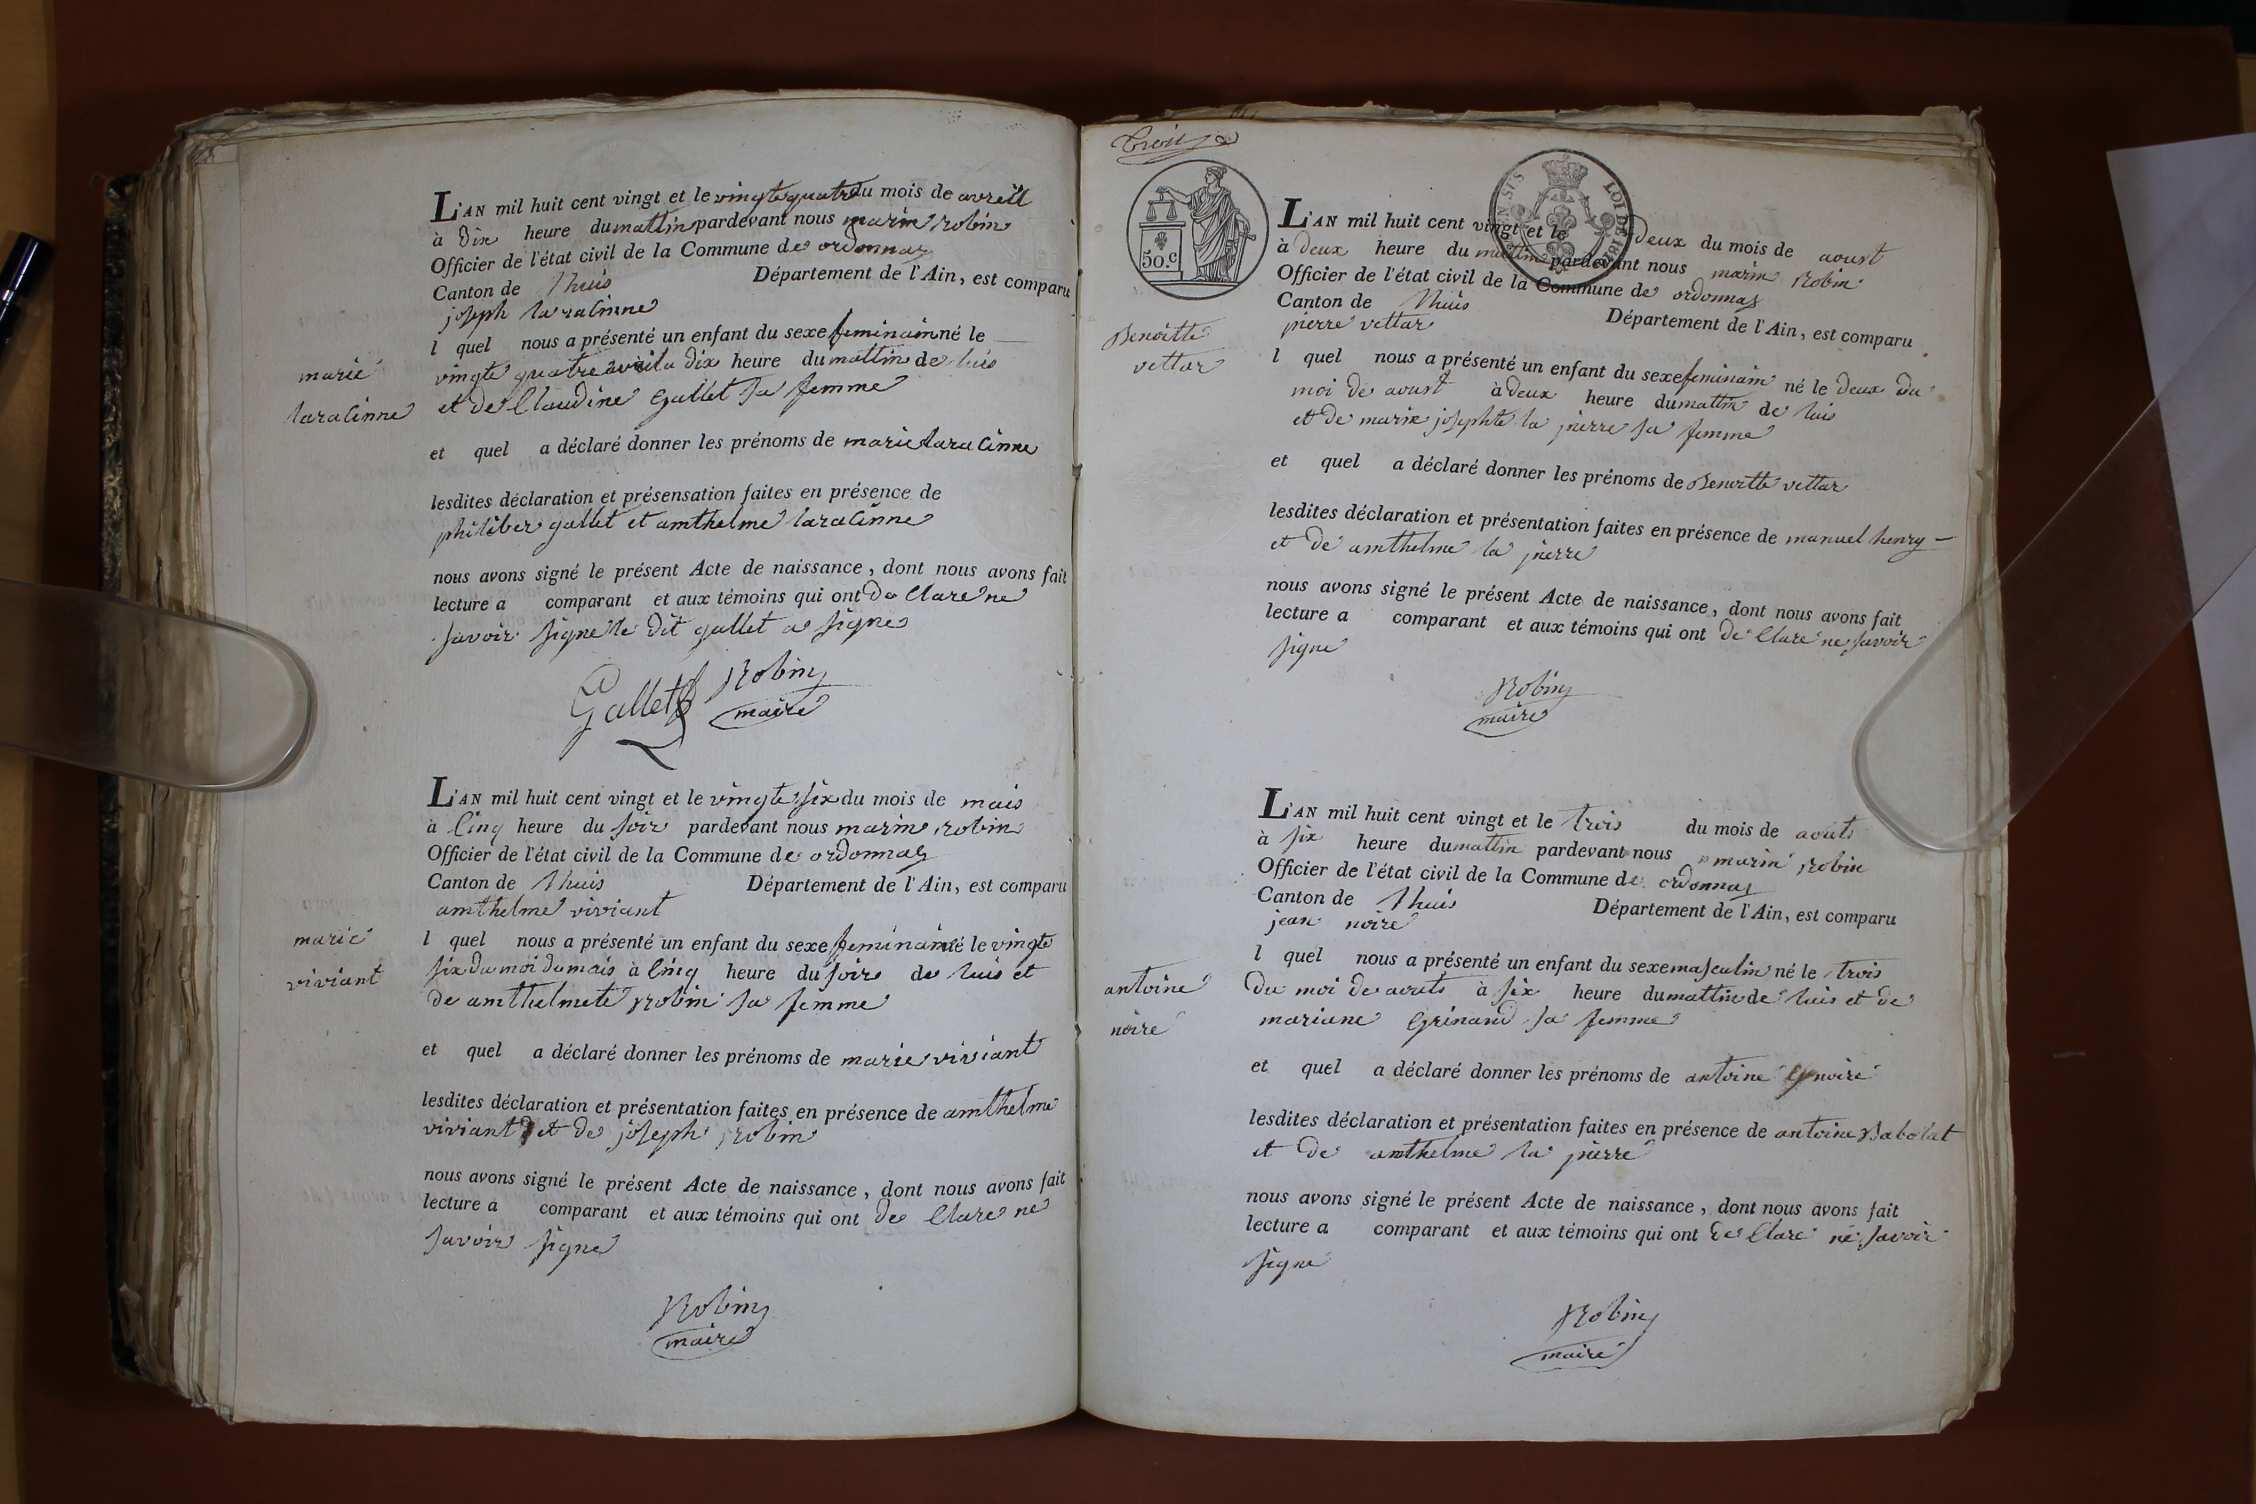 L'AN mil huit cent vingt et le vingte quatre du mois de avrill
à dix heure du mattin pardevant nous marin robin
Officier de l'état civil de la Commune de ordonnaz
Canton de lhuis Département de l'Ain, est comparu
joseph laracinne
l quel nous a présenté un enfant du sexe feminain né le
vingte quatre avril a dix heure du mattin de luis
et de Claudine Gallet sa femme
marie
laracinne
et quel a déclaré donner les prénoms de marie laracinne
lesdites déclaration et présensation faites en présence de
philiber gallet et amthelme laracinne
nous avons signé le présent Acte de naissance, dont nous avons fait
lecture a comparant et aux témoins qui ont de Clare ne
savoir signe le dit gallet a signe
Gallet Robin
maire
L'AN mil huit cent vingt et le vingte six du mois de mais
à Cinq heure du soir pardevant nous marin robin
Officier de l'état civil de la Commune de ordonnaz
Canton de lhuis Département de l'Ain, est comparu
amthelme viviant
marie
viviant
l quel nous a présenté un enfant du sexe feminain né le vingte
six du moi du mais à Cinq heure du soire de luis et
de amthelmete robin sa femme
et quel a déclaré donner les prénoms de marie viviant
lesdites déclaration et présentation faites en présence de amthelme
viviant et de joseph robin
nous avons signé le présent Acte de naissance, dont nous avons fait
lecture a comparant et aux témoins qui ont de Clare ne
savoir signe
Robin
maire
trois
50.c
LOI DE 18
L'AN mil huit cent vingt et le deux du mois de aoust
à deux heure du mattin pardevant nous marin robin
Officier de l'état civil de la Commune de ordonnaz
Canton de lhuis Département de l'Ain, est comparu
pierre vettar
Benoitte
vettar
l quel nous a présenté un enfant du sexe feminain né le deux du
moi de aoust à deux heure du mattin de luis
et de marie josephte la pierre sa femme
et quel a déclaré donner les prénoms de Benoitte vettar
lesdites déclaration et présentation faites en présence de manuel henry
et de amthelme la pierre
nous avons signé le présent Acte de naissance, dont nous avons fait
lecture a comparant et aux témoins qui ont de Clare ne savoir
signe
Robin
maire
L'AN mil huit cent vingt et le trois du mois de aouts
à six heure du mattin pardevant nous marin robin
Officier de l'état civil de la Commune de ordonnaz
Canton de lhuis Département de l'Ain, est comparu
jean noire
antoine
noire
l quel nous a présenté un enfant du sexe masculin né le trois
du moi de aouts à six heure du mattin de luis et de
mariane Grinand sa femme
et quel a déclaré donner les prénoms de antoine noire
lesdites déclaration et présentation faites en présence de antoine Babolat
et de amthelme la pierre
nous avons signé le présent Acte de naissance, dont nous avons fait
lecture a comparant et aux témoins qui ont de Clare ne savoir
signe
Robin
maire